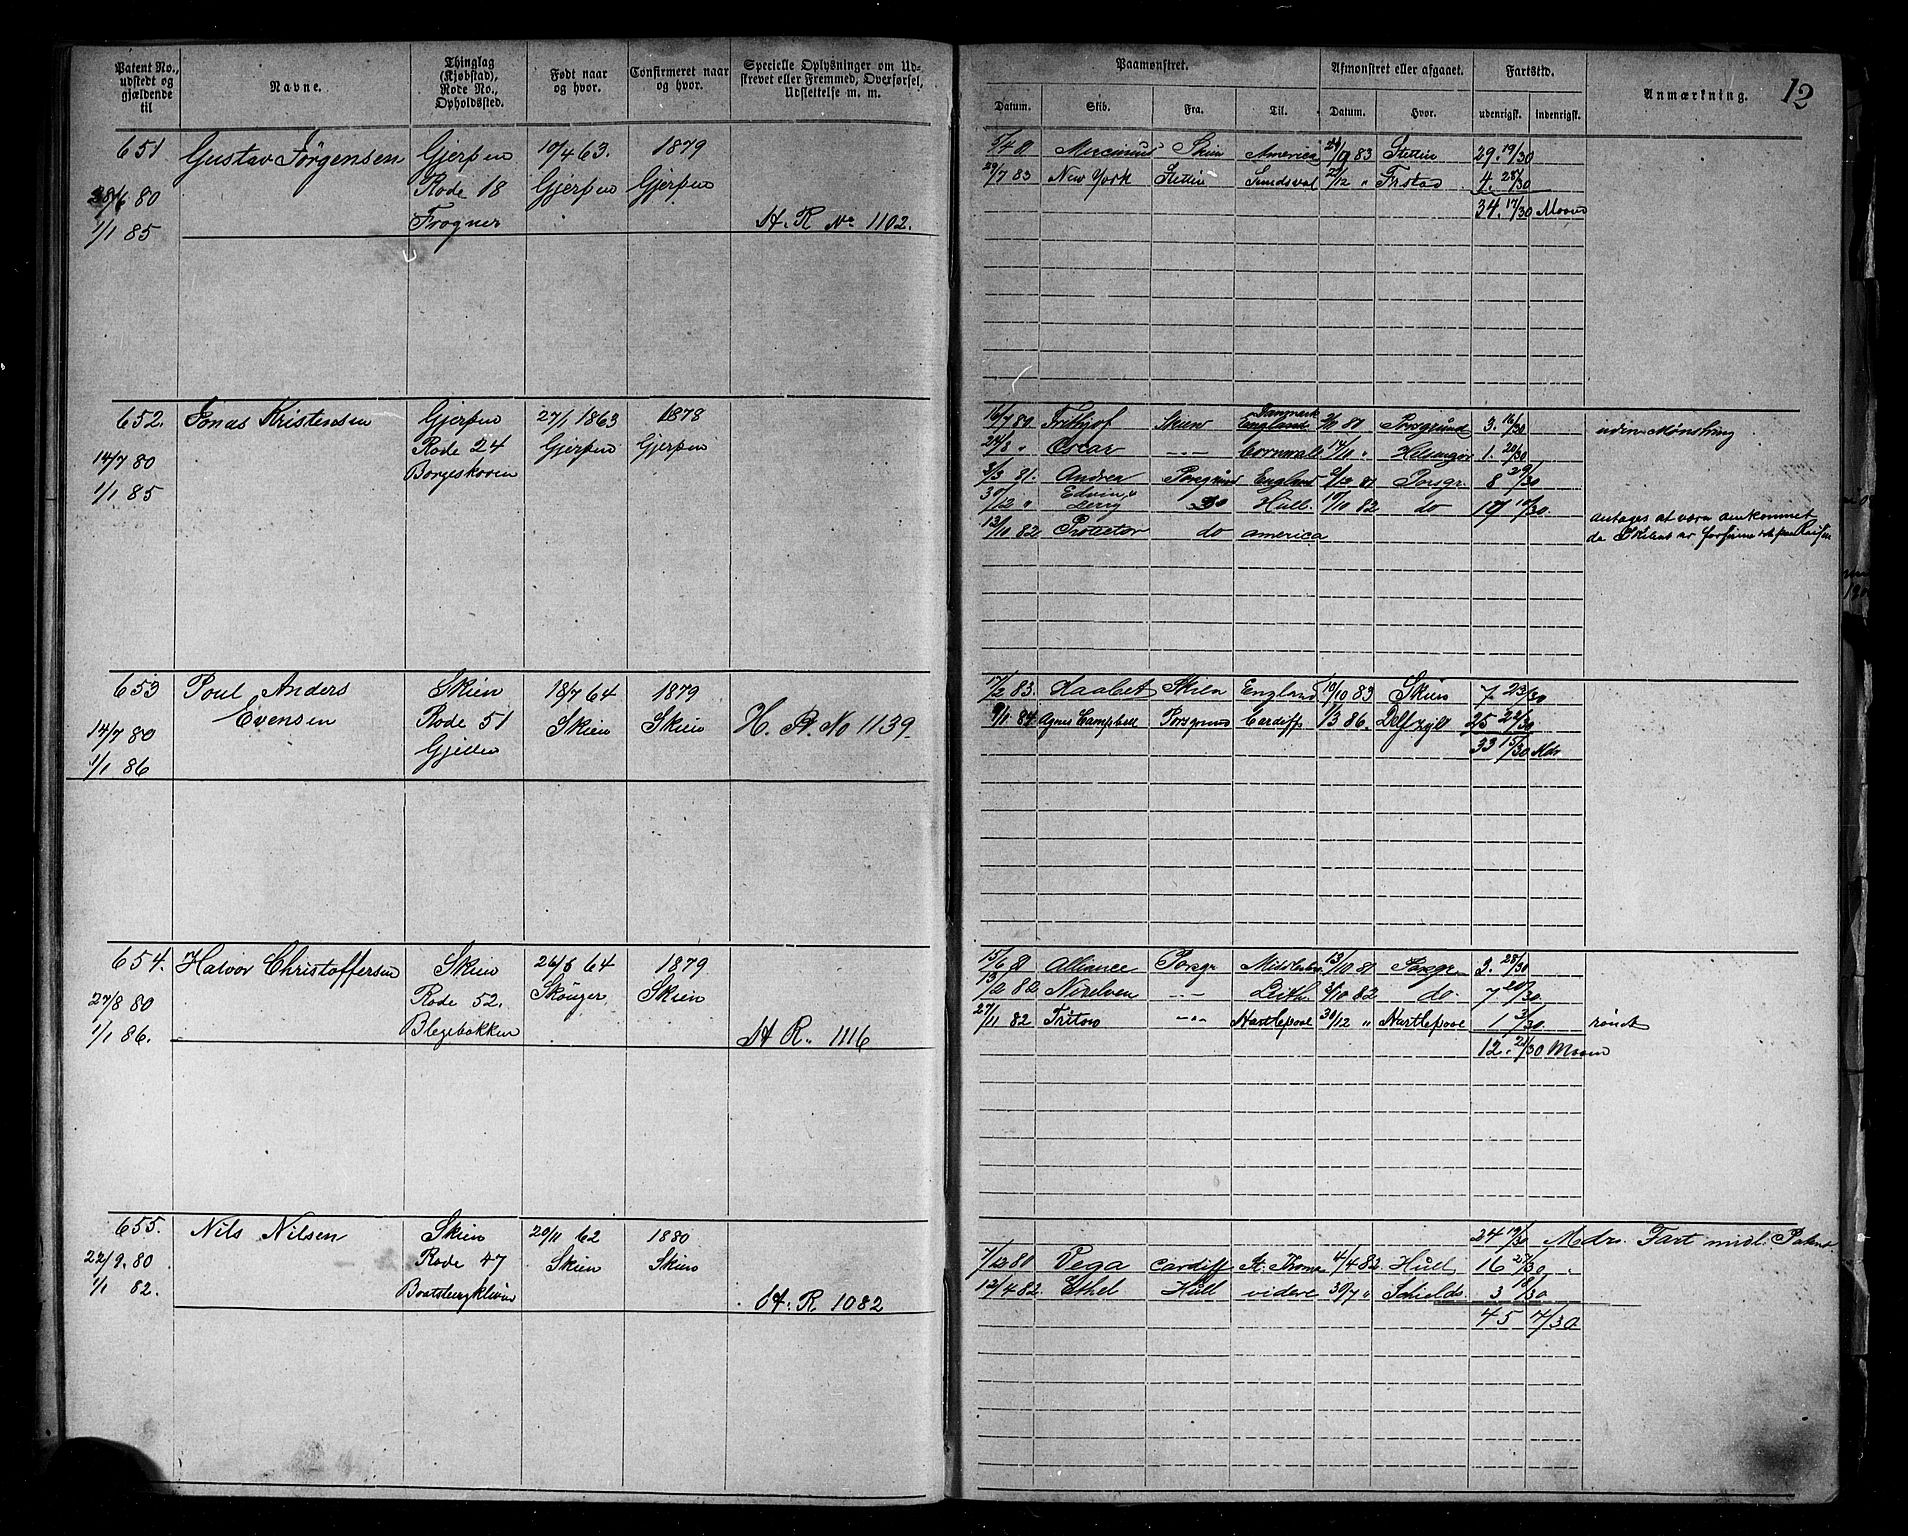 Patent No., udstedt og gjældende til | Navne. | Thinglag (Kjøbstad), Rode No., Opholdssted. | Født naar og hvor. | Confirmeret naar og hvor. | Specielle Oplysninger om Udskrevet eller Fremmed, Overførsel, Udslettelse m. m.
Paamønstret. | Afmønstret eller afgaaet. | Fartstid. | Anmærkning. | 12
Datum. | Skib. | Fra. | Til. | Datum. | Hvor. | udenrigsk. | indenrigsk.
651 | Gustav Jørgensen | Gjerpen | 17/4 63. | 1879
28/6 80 | Rode 18 | Gjerpen | Gjerpen
1/1 85 | Frogner | H. R No 1102.
Mercurius | Skien | America | 83 | Stettin | 29. 19/30
/7 83 | New York | Stettin | Sundsval | /12 " | 4. 28/30
34. 17/30 Maaned
652. | Jonas Kristensen | Gjerpen | 27/1 1863 | 1878
14/7 80 | Rode 24 | Gjerpen | Gjerpen
1/1 85 | Borgeskoven
16/7 80 | Frithjof | Skien | Danmark England | Porsgrund | 3. 16/30 | uden Mønstring
24/8 " | Oscar | -"- | Cornwall | 17/10 " | Helsingør | 1.
3/3 81. | Andrea | Porsgrund | England | /12 81 | Porsgr | 8 29/30
30/12 " | Edvin | Do | Hull. | 17/10 82 | do
13/10 82 | Protector | do | america | antages at være omkommet
da Skibet er
653 | Poul Anders Evensen | Skien | 18/7 64 | 1879
14/7 80 | Rode 51 | Skien | Skien | H. R. No 1139.
1/1 86 | Gjelten
17/2 83. | Haabet | Skien | England | 19/10 83 | Skien | 7 23/30
9/1 84 | Agnes Campbell | Porsgrund | Cardiff | 1/3 86. | Delfzyl | 25 22/30
33 15/30 Mdr
654. | Halvor Christoffersen | Skien | 26/8 64 | 1879
27/8 80 | Rode 52. | Skouger | Skien
1/1 86. | Blegebakken | H R. 1116
15/6 81 | Alliance | Porsgr | Middlesbro | 13/10 81 | Porsgr | 3. 28/30
13/2 82 | -"- | Leith | 3/10 82 | do | 7 20/30
27/11 82 | Triton | -"- | Hartlepool | 30/12 " | Hartlepool | 1 3/30 | rømt
12. 21/30 Maaned
655. | Nils Nilsen | Skien | 20/11 62 | 1880
22/9. 80 | Rode 47 | Skien | Skien
1/1 82. | H. R 1082
24 19/30 Mdrs. Fart midl. Patent
7/12 80 | Vega | Cardiff | St. Thomas | 4/4 82 | Hull | 16 27/30 "
12/4 82 | Ethel | Hull | videre | 30/7 " | Schields | 3 18/30
45 4/30